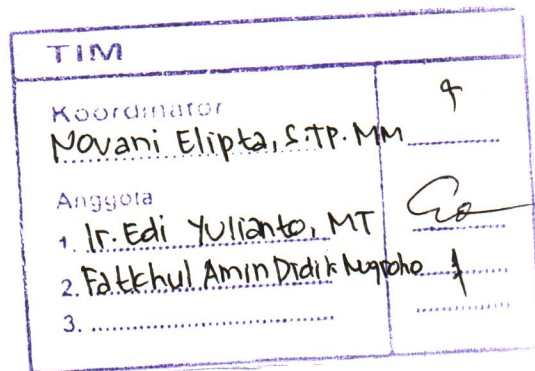 TIM
Koordinator
Novani Elipta, S.TP. MM
Anggota
1. Ir. Edi Yulianto, MT
2. Fatkhul Amin Didik Nugroho
3. ....................